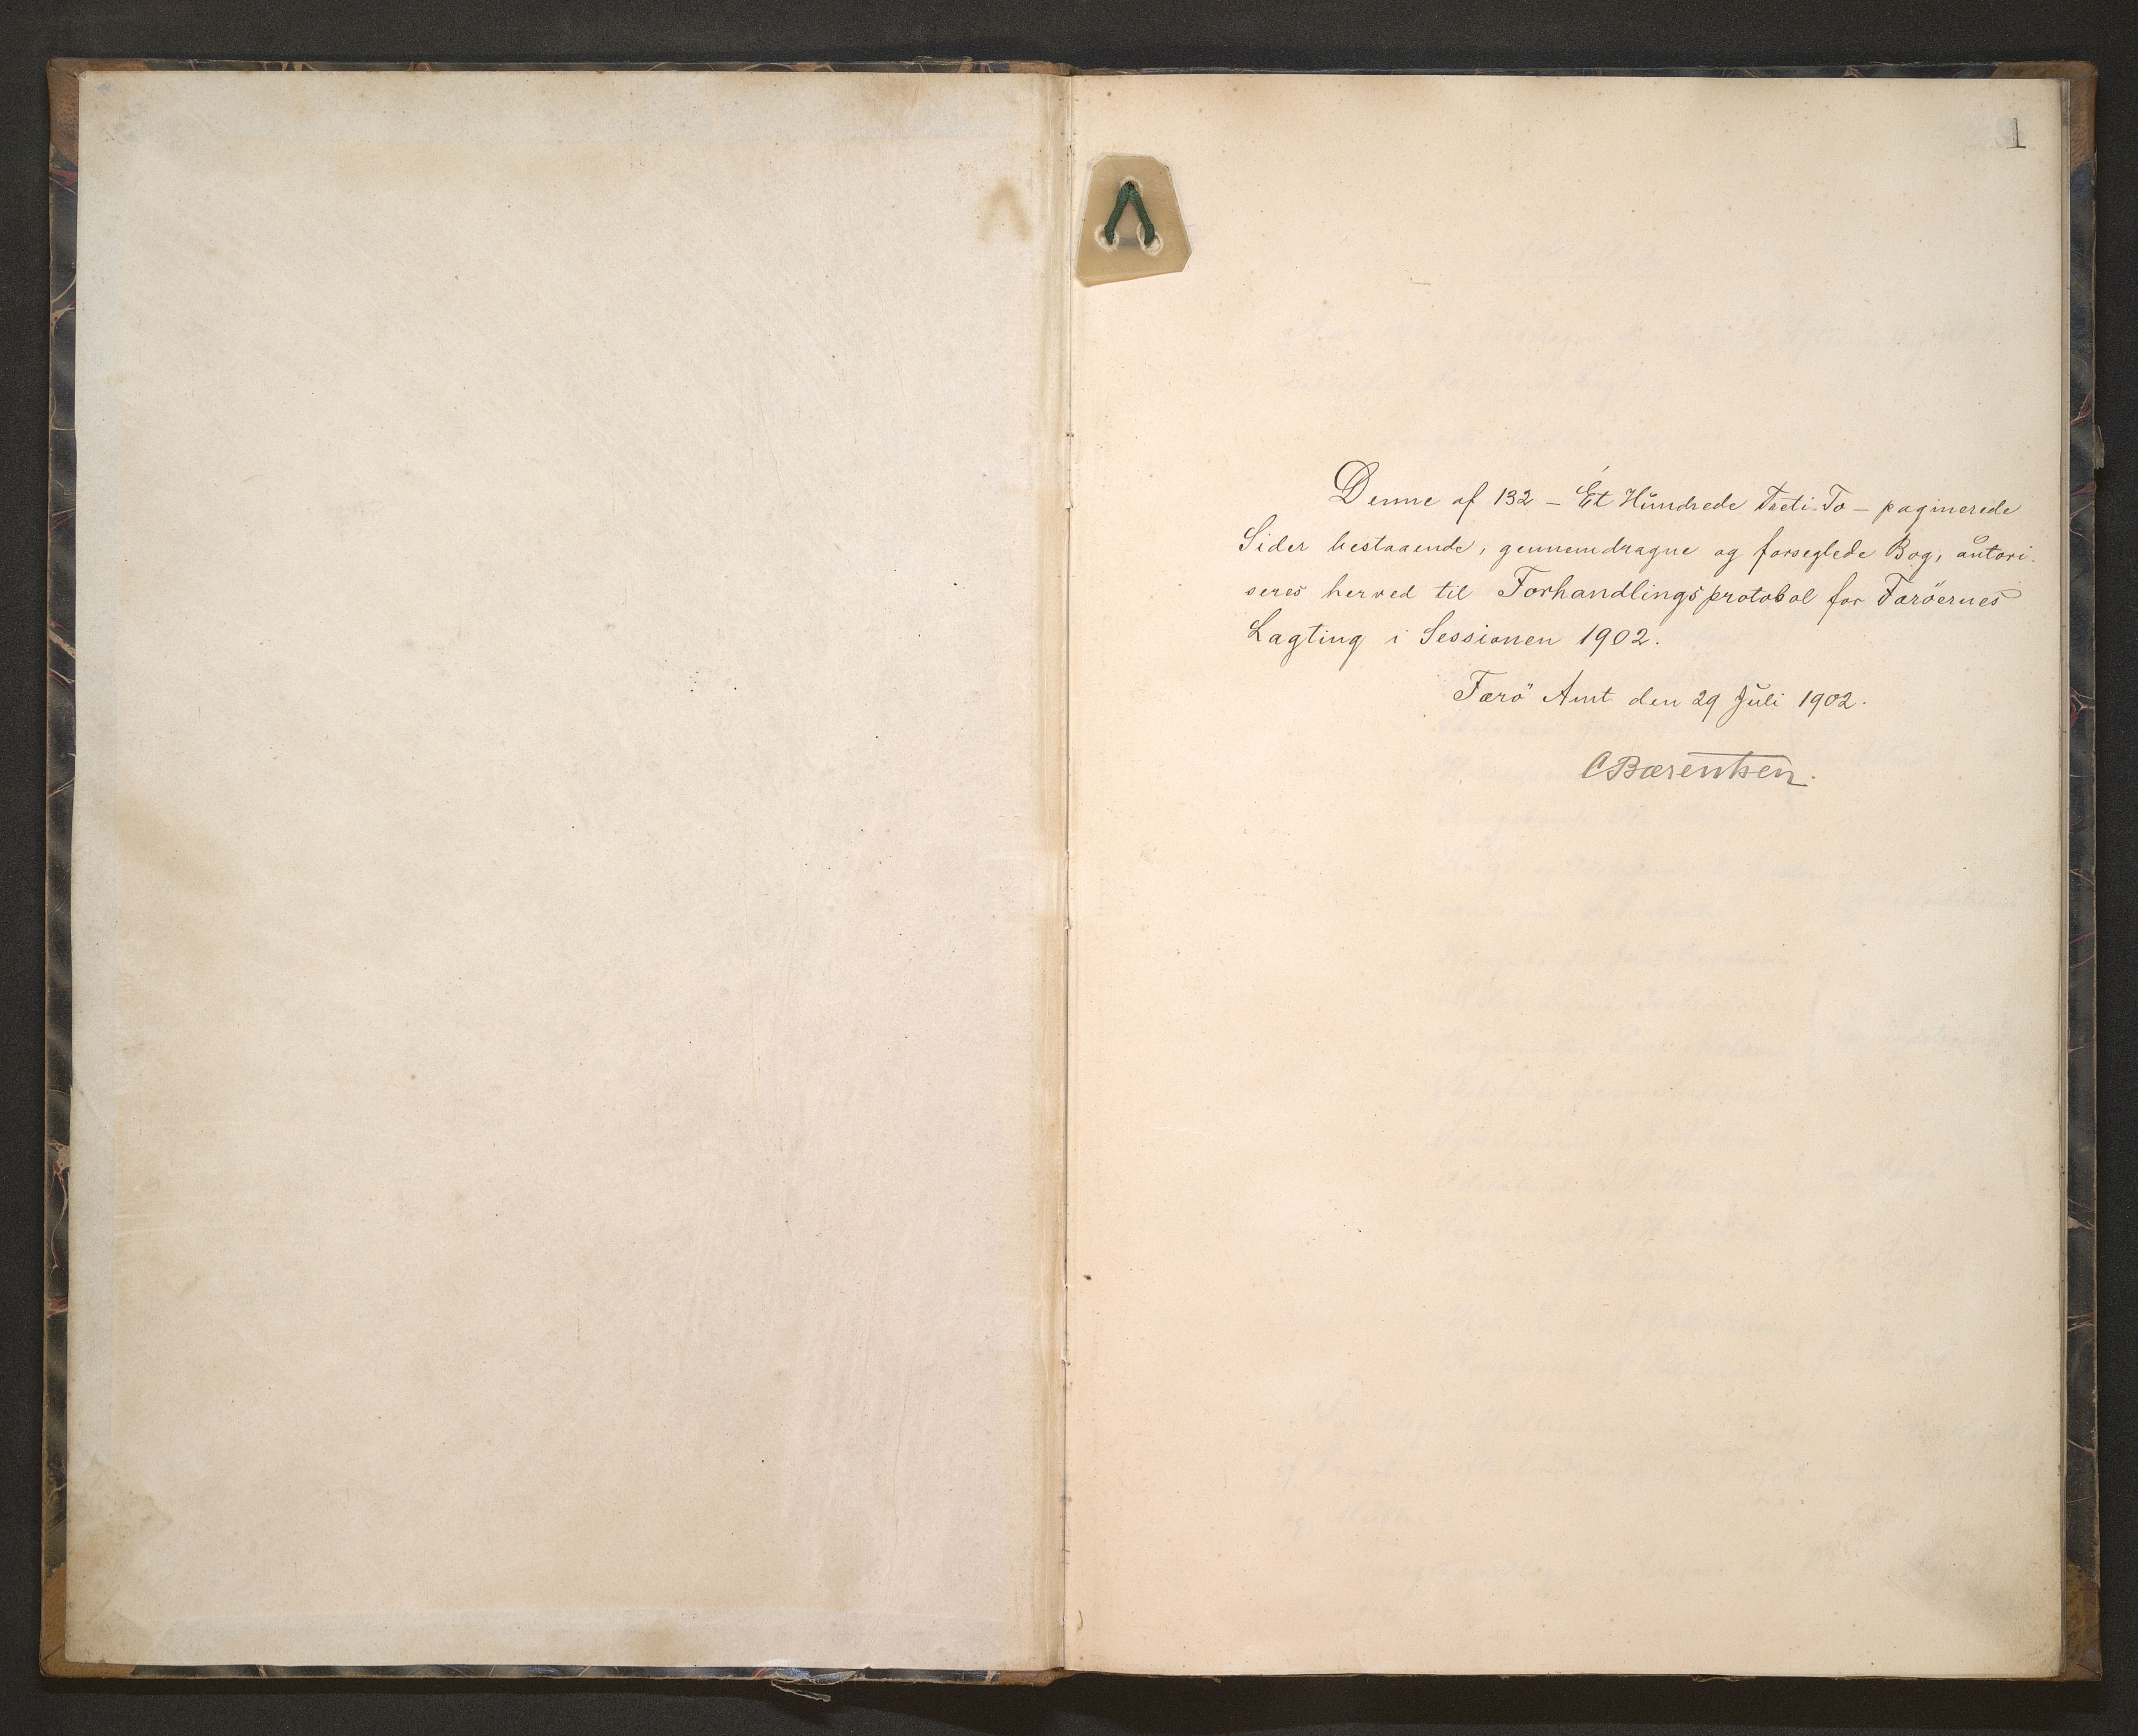 1
Denne af 132 – Ét Hundrede Treti-To – paginerede
Sider bestaaende, gennemdragne og forseglede Bog, autori-
seres herved til Forhandlingsprotokol for Færöernes
Lagting i Sessionen 1902.
Færö Amt den 29 Juli 1902.
CBærentsen.